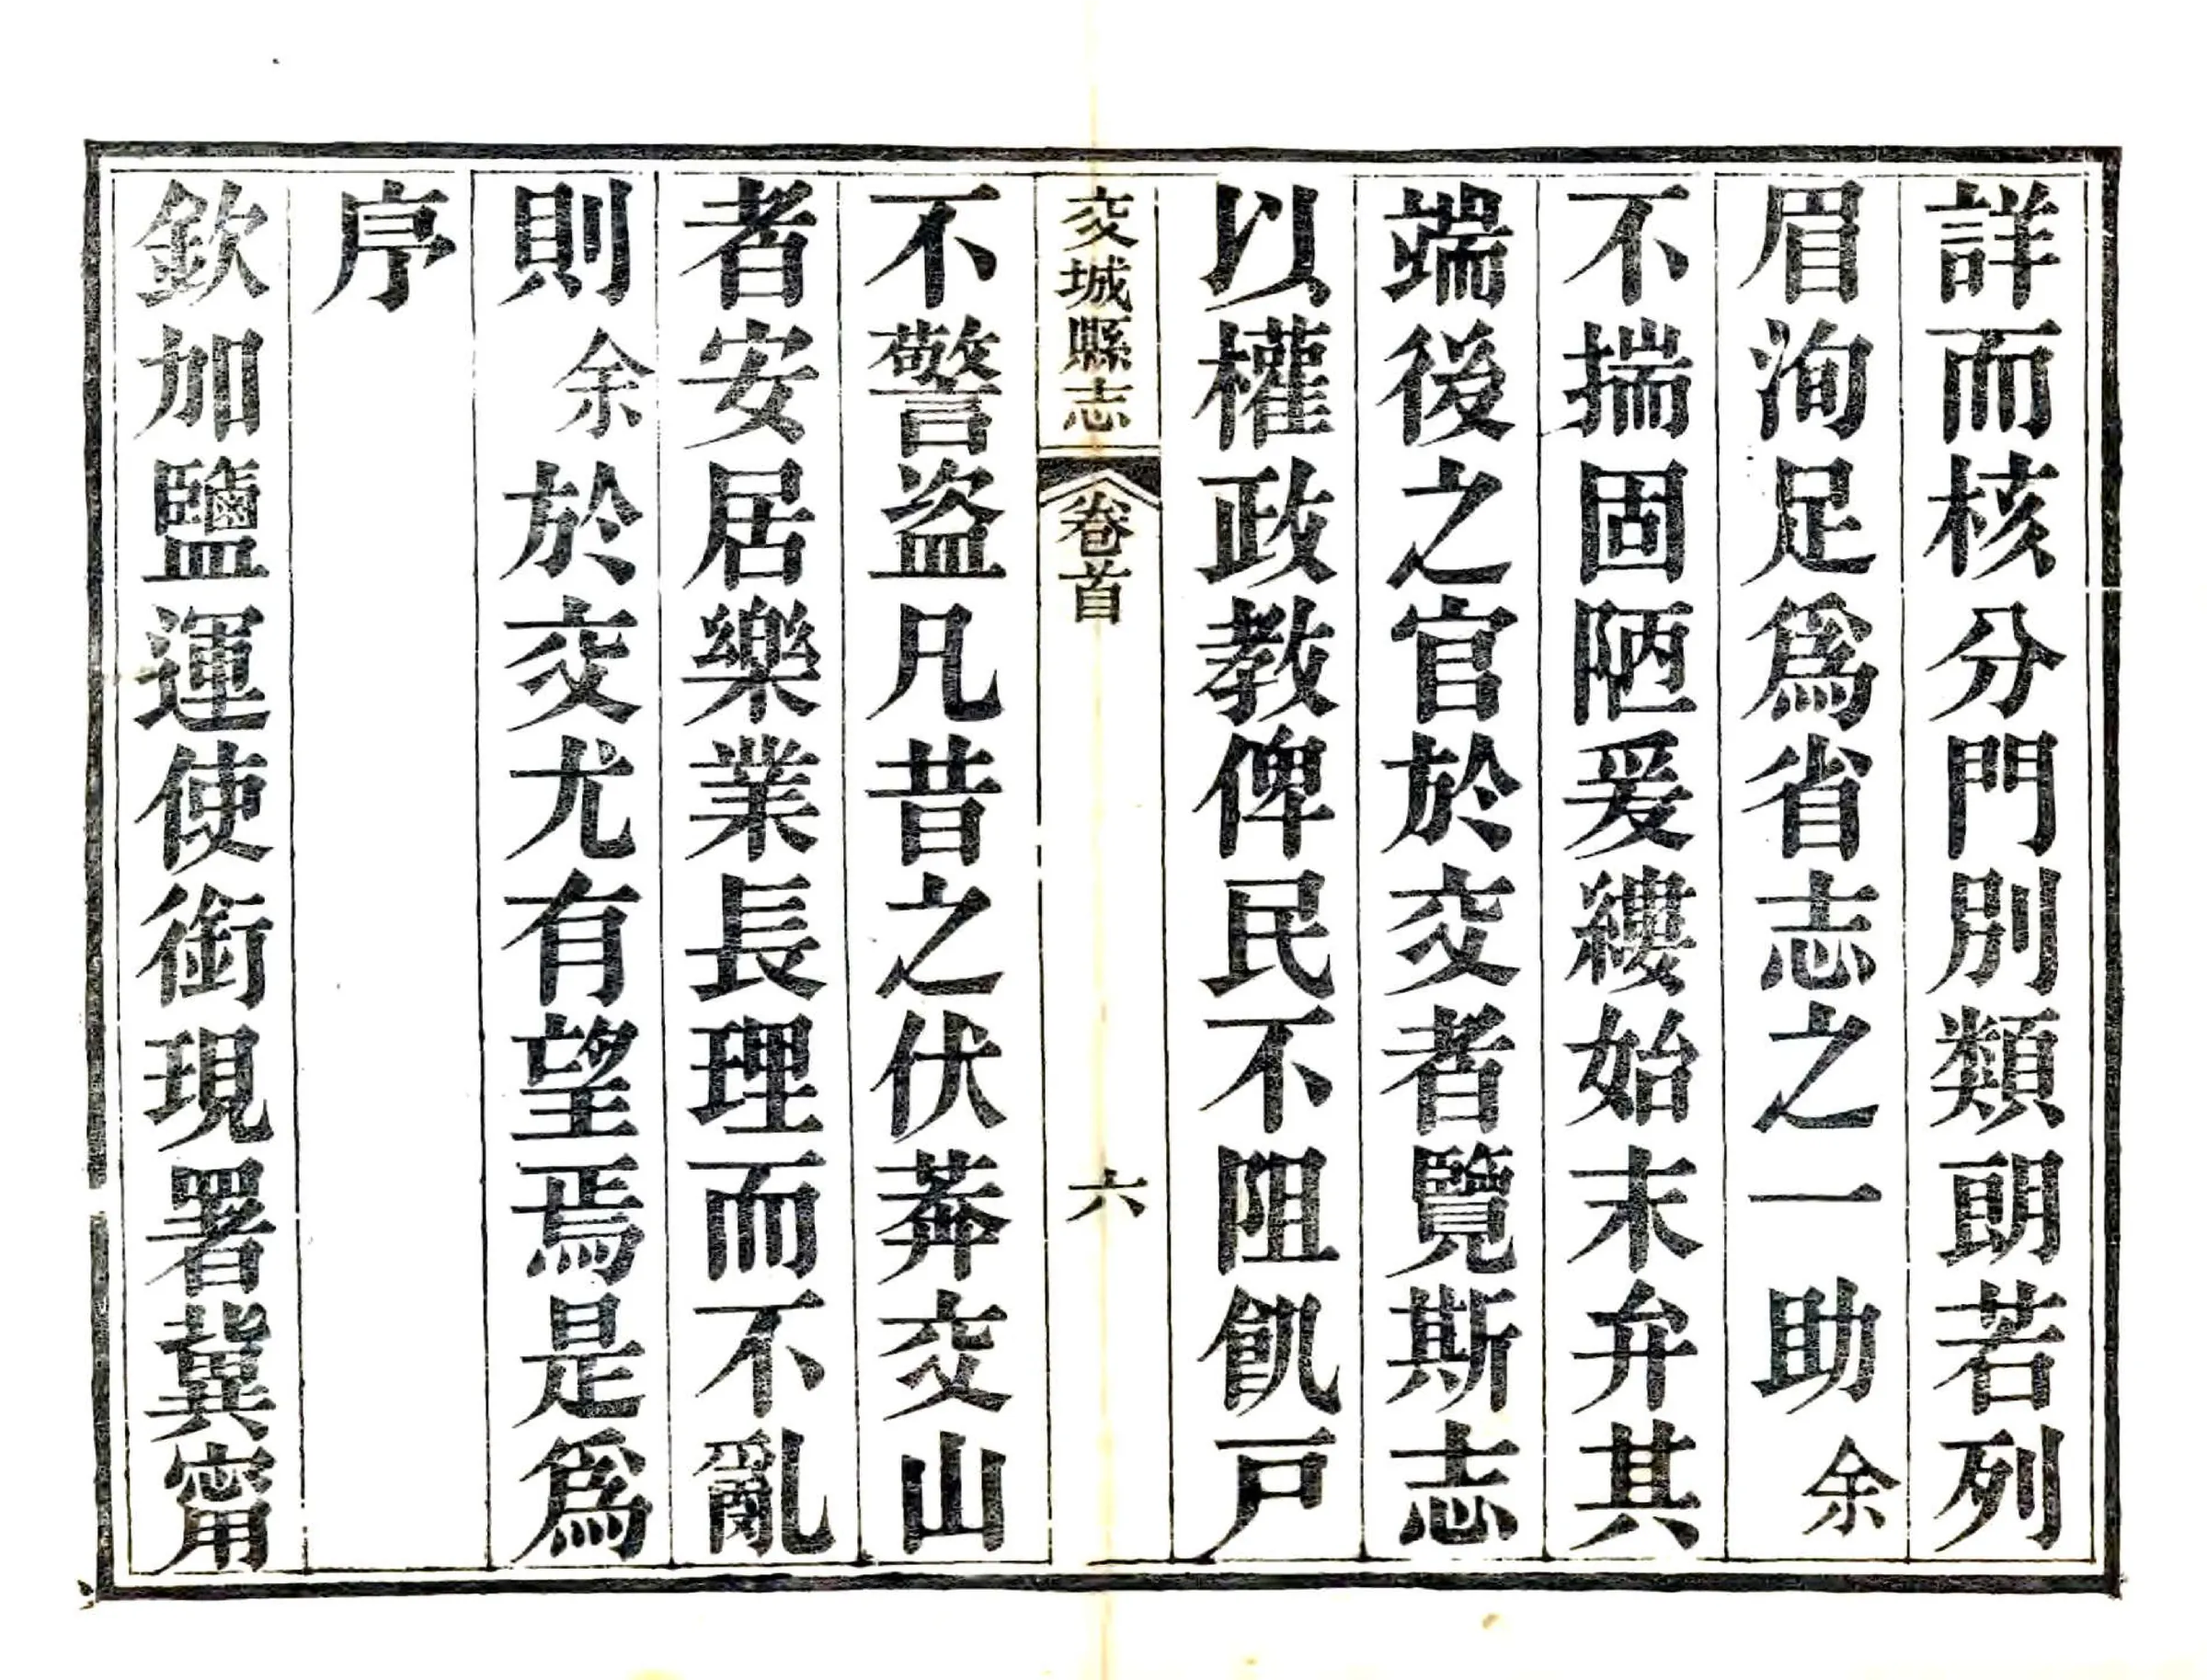 詳而核分門別類朗若列
眉洵足爲省志之一助余
不揣固陋爰縷始末弁其
端後之官於交者覽斯志
以權政教俾民不阻飢戸
交城縣志 卷首 六
不警盜凡昔之伏莽交山
者安居樂業長理而不亂
則余於交尤有望焉是爲
序
欽加鹽運使銜現署冀甯